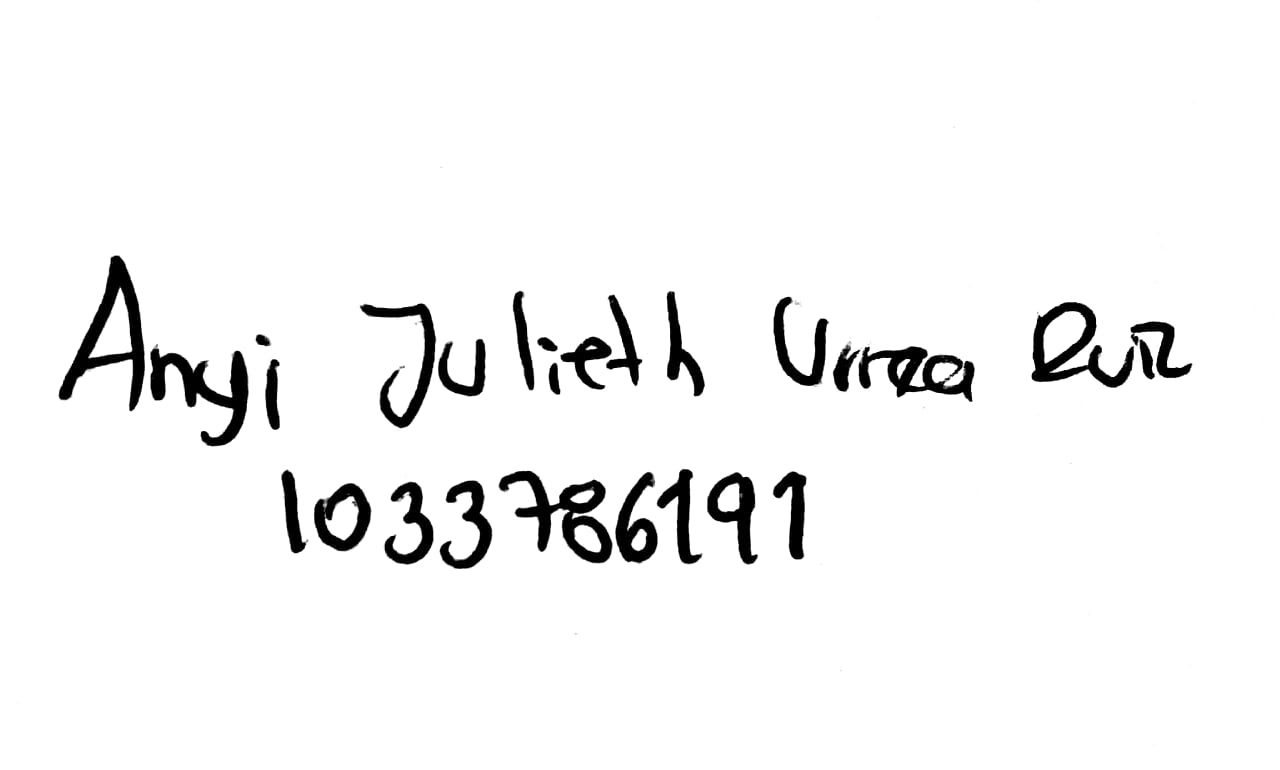 Anyi Julieth Urrza Ruiz
1033786191